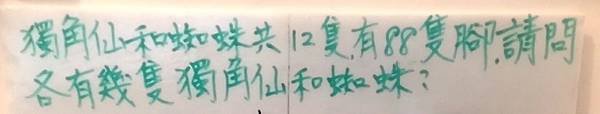 獨角仙和蜘蛛共12隻,有88隻腳,請問
各有幾隻獨角仙和蜘蛛?